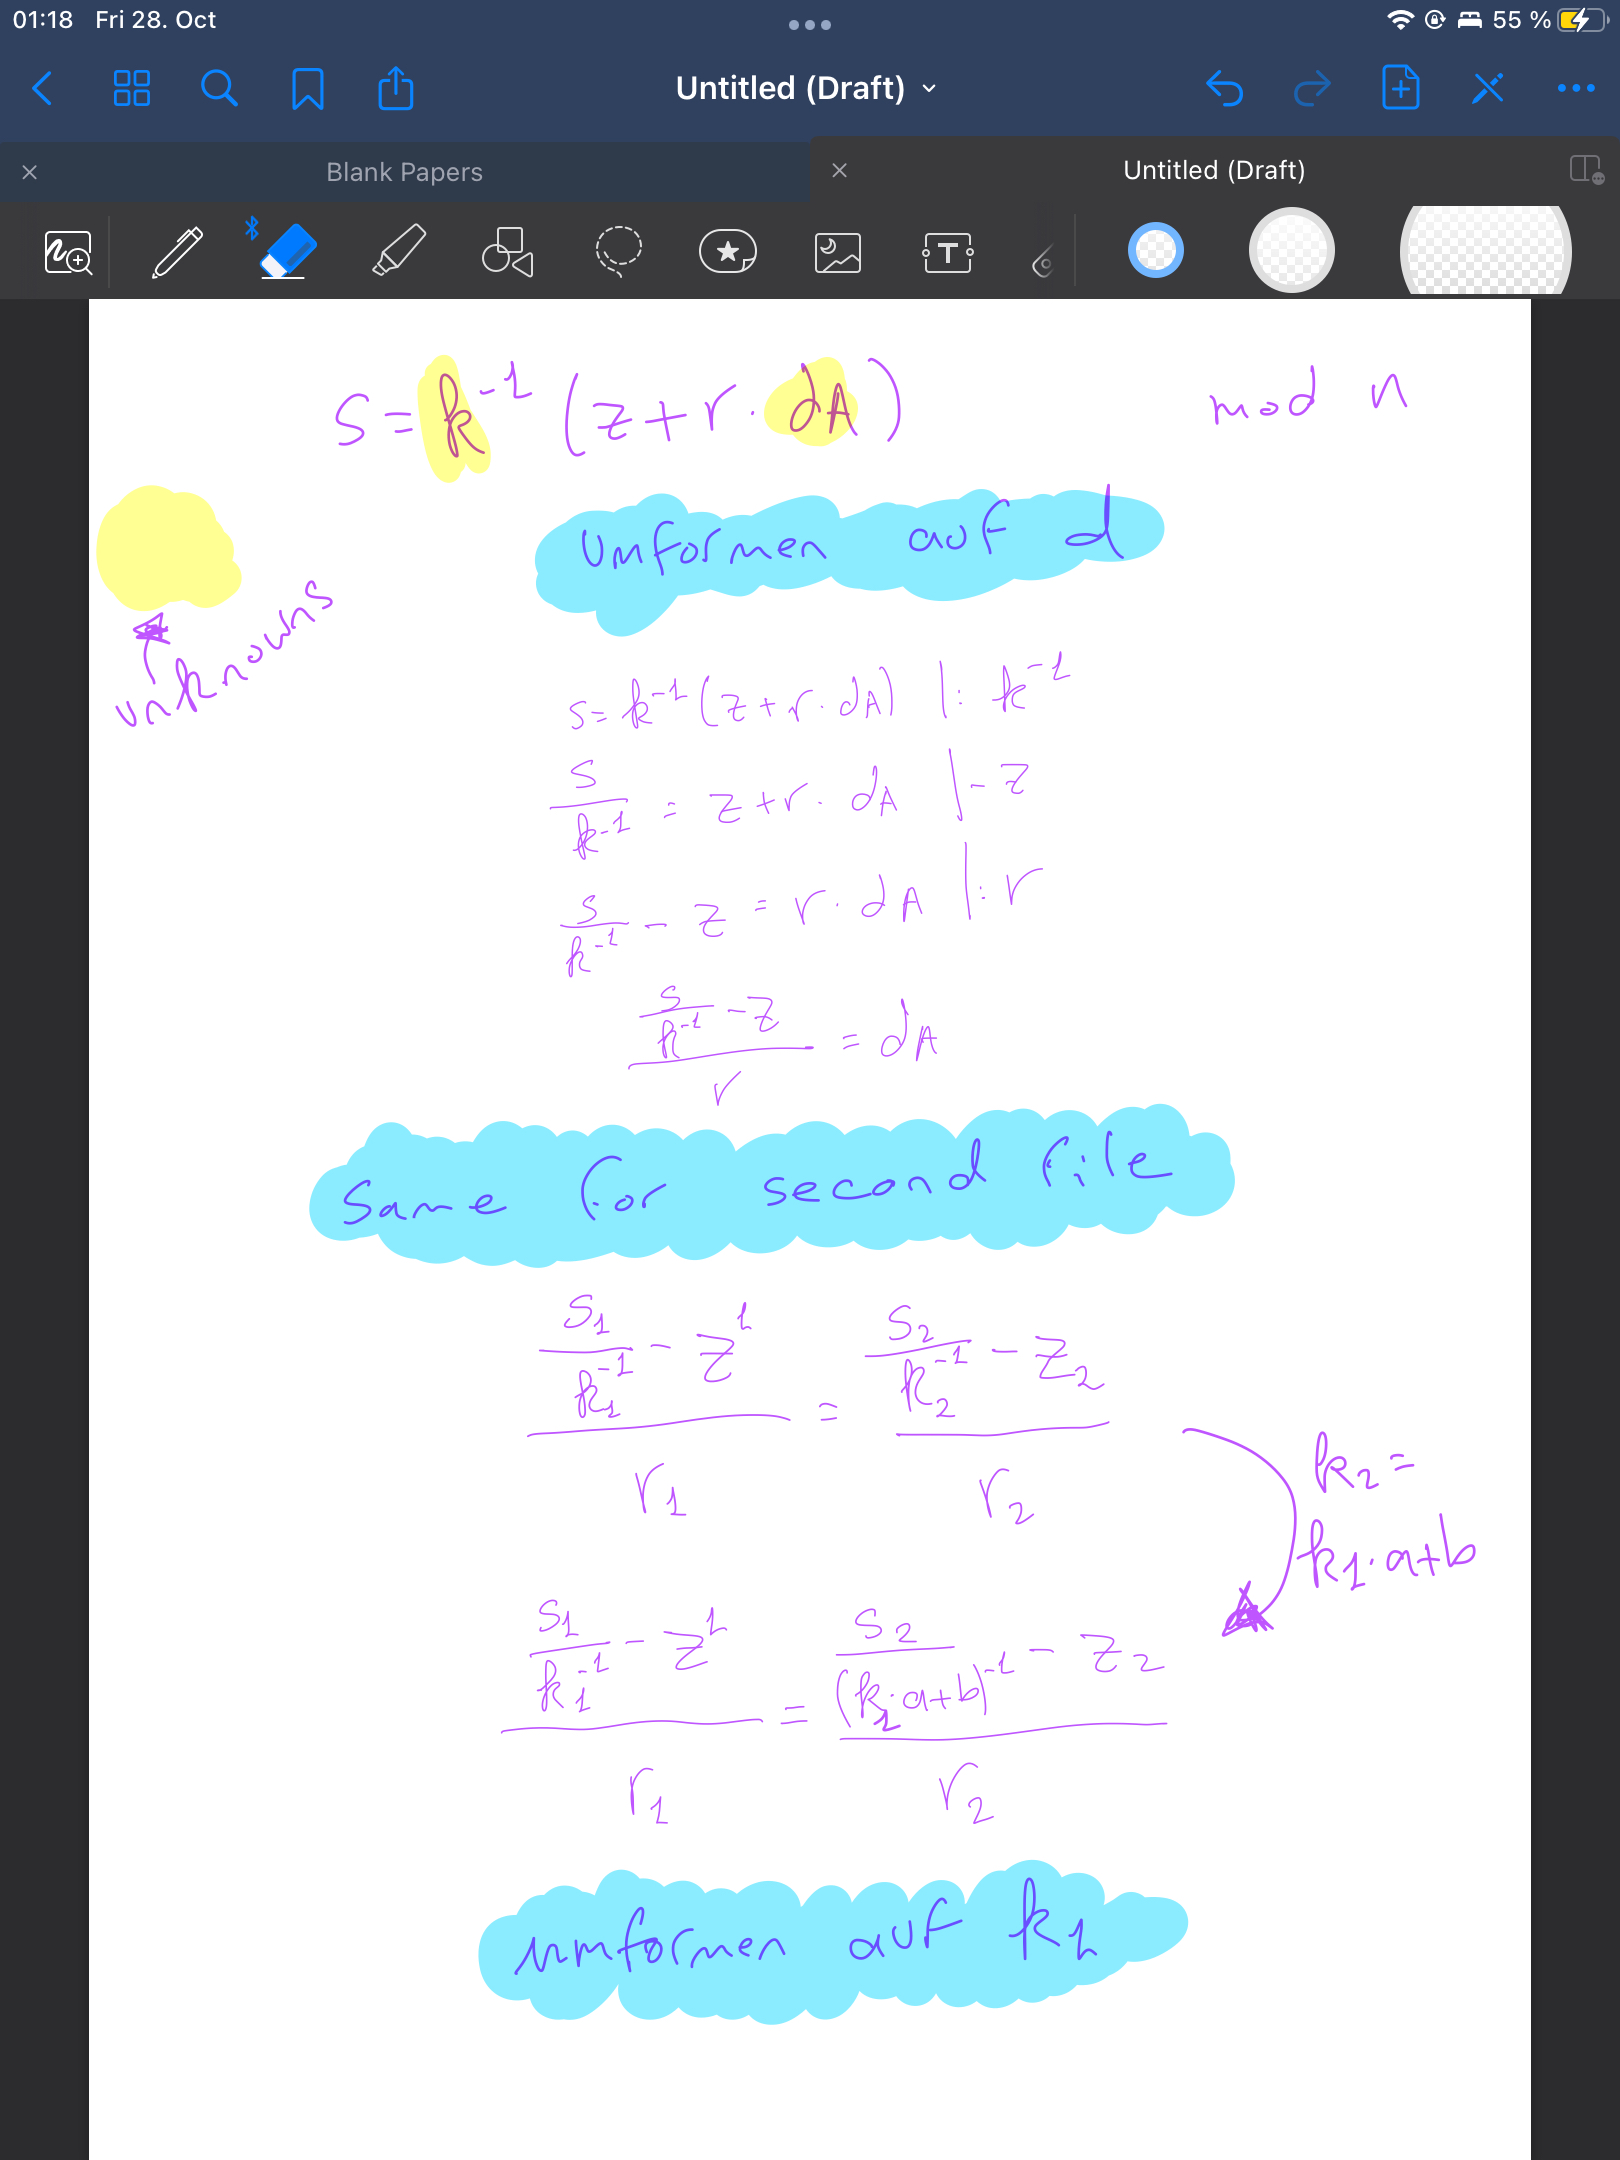 01:18 Fri 28. Oct 55 %
Untitled (Draft)
Blank Papers Untitled (Draft)
T
s = k⁻¹ (z + r · dA) mod n
Umformen auf d
unknowns
s = k⁻¹ (z + r · dA) |: k⁻¹
s/k⁻¹ = z + r · dA |- z
s/k⁻¹ - z = r · dA |: r
(s/k⁻¹ - z)/r = dA
Same for second file
(s₁/k₁⁻¹ - z¹)/r₁ = (s₂/k₂⁻¹ - z₂)/r₂
k₂ =
k₁ · a+b
(s₁/k₁⁻¹ - z¹)/r₁ = (s₂/(k₁·a+b)⁻¹ - z₂)/r₂
umformen auf k₁